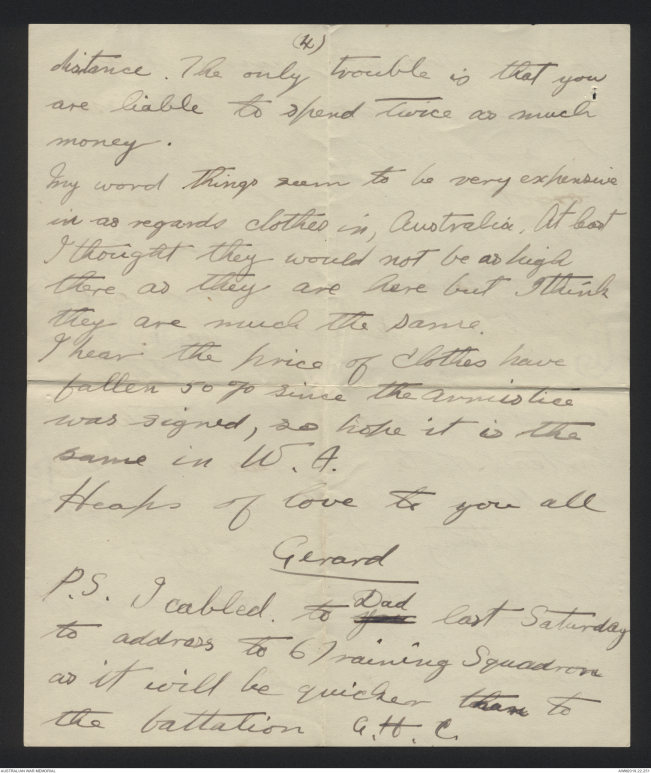 (4)
distance. The only trouble is that you
are liable to spend twice as much
money.
My word things seem to be very expensive
in as regards clothes in, Australia. At least
I thought they would not be as high
there as they are here but I think
they are much the same.
I hear the price of clothes have
fallen 50% since the armistice
was signed, so hope it is the
same in W. A.
Heaps of love to you all
Gerard
P.S. I cabled. to Dad last Saturday
to address to 6 Training Squadron
as it will be quicker than to
the battalion G.H.C.
AUSTRALIAN WAR MEMORIAL